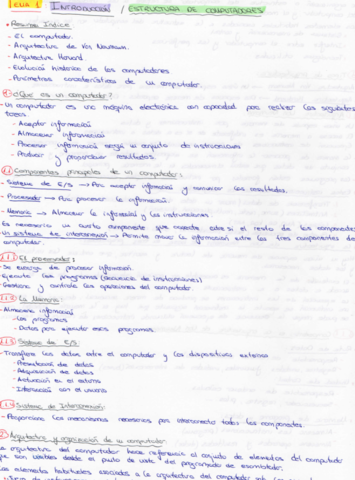 TEMA 1 INTRODUCCIÓN / ESTRUCTURA DE COMPUTADORES
• Resumen Índice:
- El computador.
- Arquitectura de Von Neumann.
- Arquitectura Harvard
- Evolución histórica de los computadores
- Parámetros característicos de un computador.
¿Que es un computador?
- Un computador es una máquina electrónica con capacidad para realizar las siguientes tareas.
- Aceptar información
- Almacenar información
- Procesar información según un conjunto de instrucciones
- Producir y proporcionar resultados.
1.1 Componentes principales de un computador:
- Sistema de E/S → Para aceptar información y comunicar los resultados.
- Procesador → Para procesar la información.
- Memoria → Almacenar la información y las instrucciones.
Es necesario un cuarto componente que conecte entre si el resto de los componentes
- Un sistema de interconexión → Permite mover la información entre los tres componentes del
computador.
1.1.1 El procesador:
- Se encarga de procesar información.
- Ejecuta los programas (secuencia de instrucciones)
- Gestiona y controla las operaciones del computador.
1.1.2 La Memoria:
- Almacena información
- Los programas
- Datos para ejecutar esos programas.
1.1.3 Sistema de E/S:
- Transfiere los datos entre el computador y los dispositivos externos
- Presentación de datos
- Adquisición de datos
- Actuación en el entorno
- Interacción con el usuario
1.1.4 Sistema de Interconexión:
- Proporciona los mecanismos necesarios para interconectar todos los componentes.
Arquitectura y organización de un computador
La arquitectura del computador hace referencia al conjunto de elementos del computador
que son visibles desde el punto de vista del programador de ensamblador.
Los elementos habituales asociados a la arquitectura del computador son